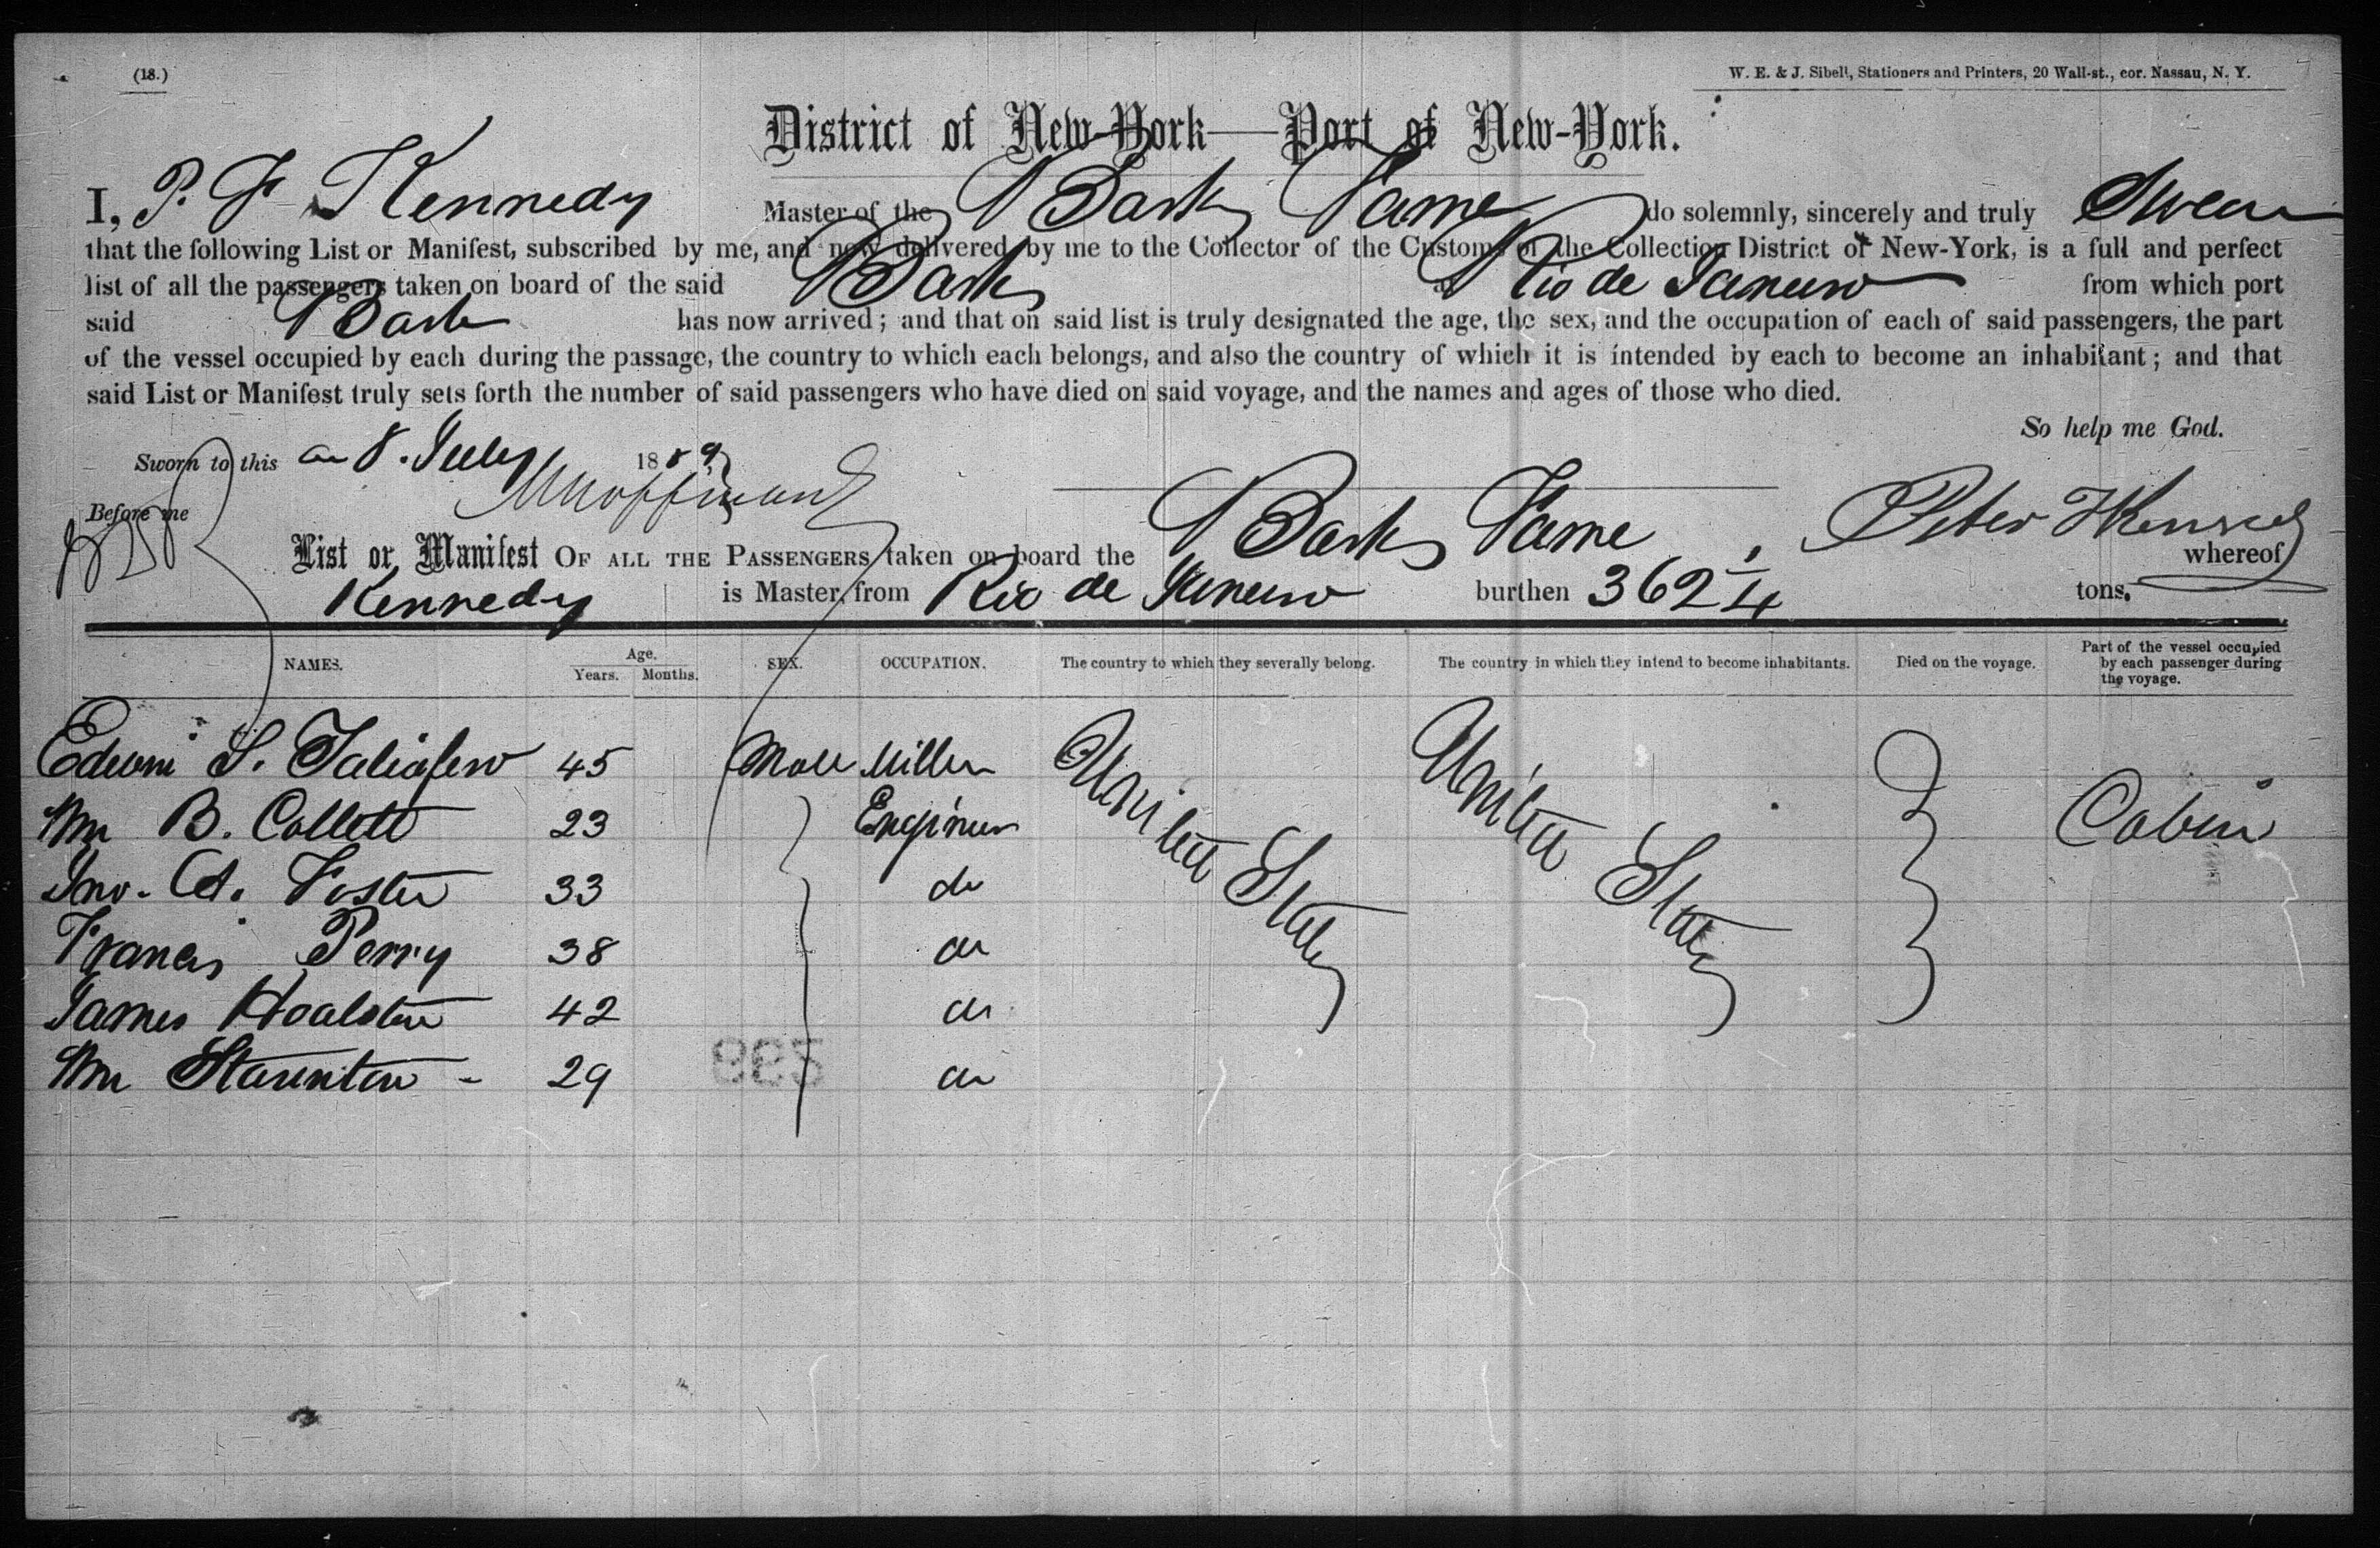 (18.)
W. E. & J. Sibell, Stationers and Printers, 20 Wall-st., cor. Nassau, N. Y.
District of New-York—Port of New-York.
I, P. F Kennedy Master of the Bark Fame do solemnly, sincerely and truly Swear
that the following List or Manifest, subscribed by me, and now delivered by me to the Collector of the Customs of the Collection District of New-York, is a full and perfect
list of all the passengers taken on board of the said Bark at Rio de Janeiro from which port
said Bark has now arrived; and that on said list is truly designated the age, the sex, and the occupation of each of said passengers, the part
of the vessel occupied by each during the passage, the country to which each belongs, and also the country of which it is intended by each to become an inhabitant; and that
said List or Manifest truly sets forth the number of said passengers who have died on said voyage, and the names and ages of those who died.
So help me God.
Sworn to this 8. July 1859
Before me
List or Manifest OF ALL THE PASSENGERS taken on board the Bark Fame, Peter whereof
Kennedy is Master, from Rio de Janeiro burthen 362 1/4 tons.
NAMES. Age. Years. Months. SEX. OCCUPATION. The country to which they severally belong. The country in which they intend to become inhabitants. Died on the voyage. Part of the vessel occupied by each passenger during the voyage.
Edwin S. Taliaferro 45 Male Miller United States United States Cabin
Wm B. Collett 23 Engineer
Jno. A. Foster 33 do
Francis Perry 38 do
James 42 do
Wm Staunton - 29 do